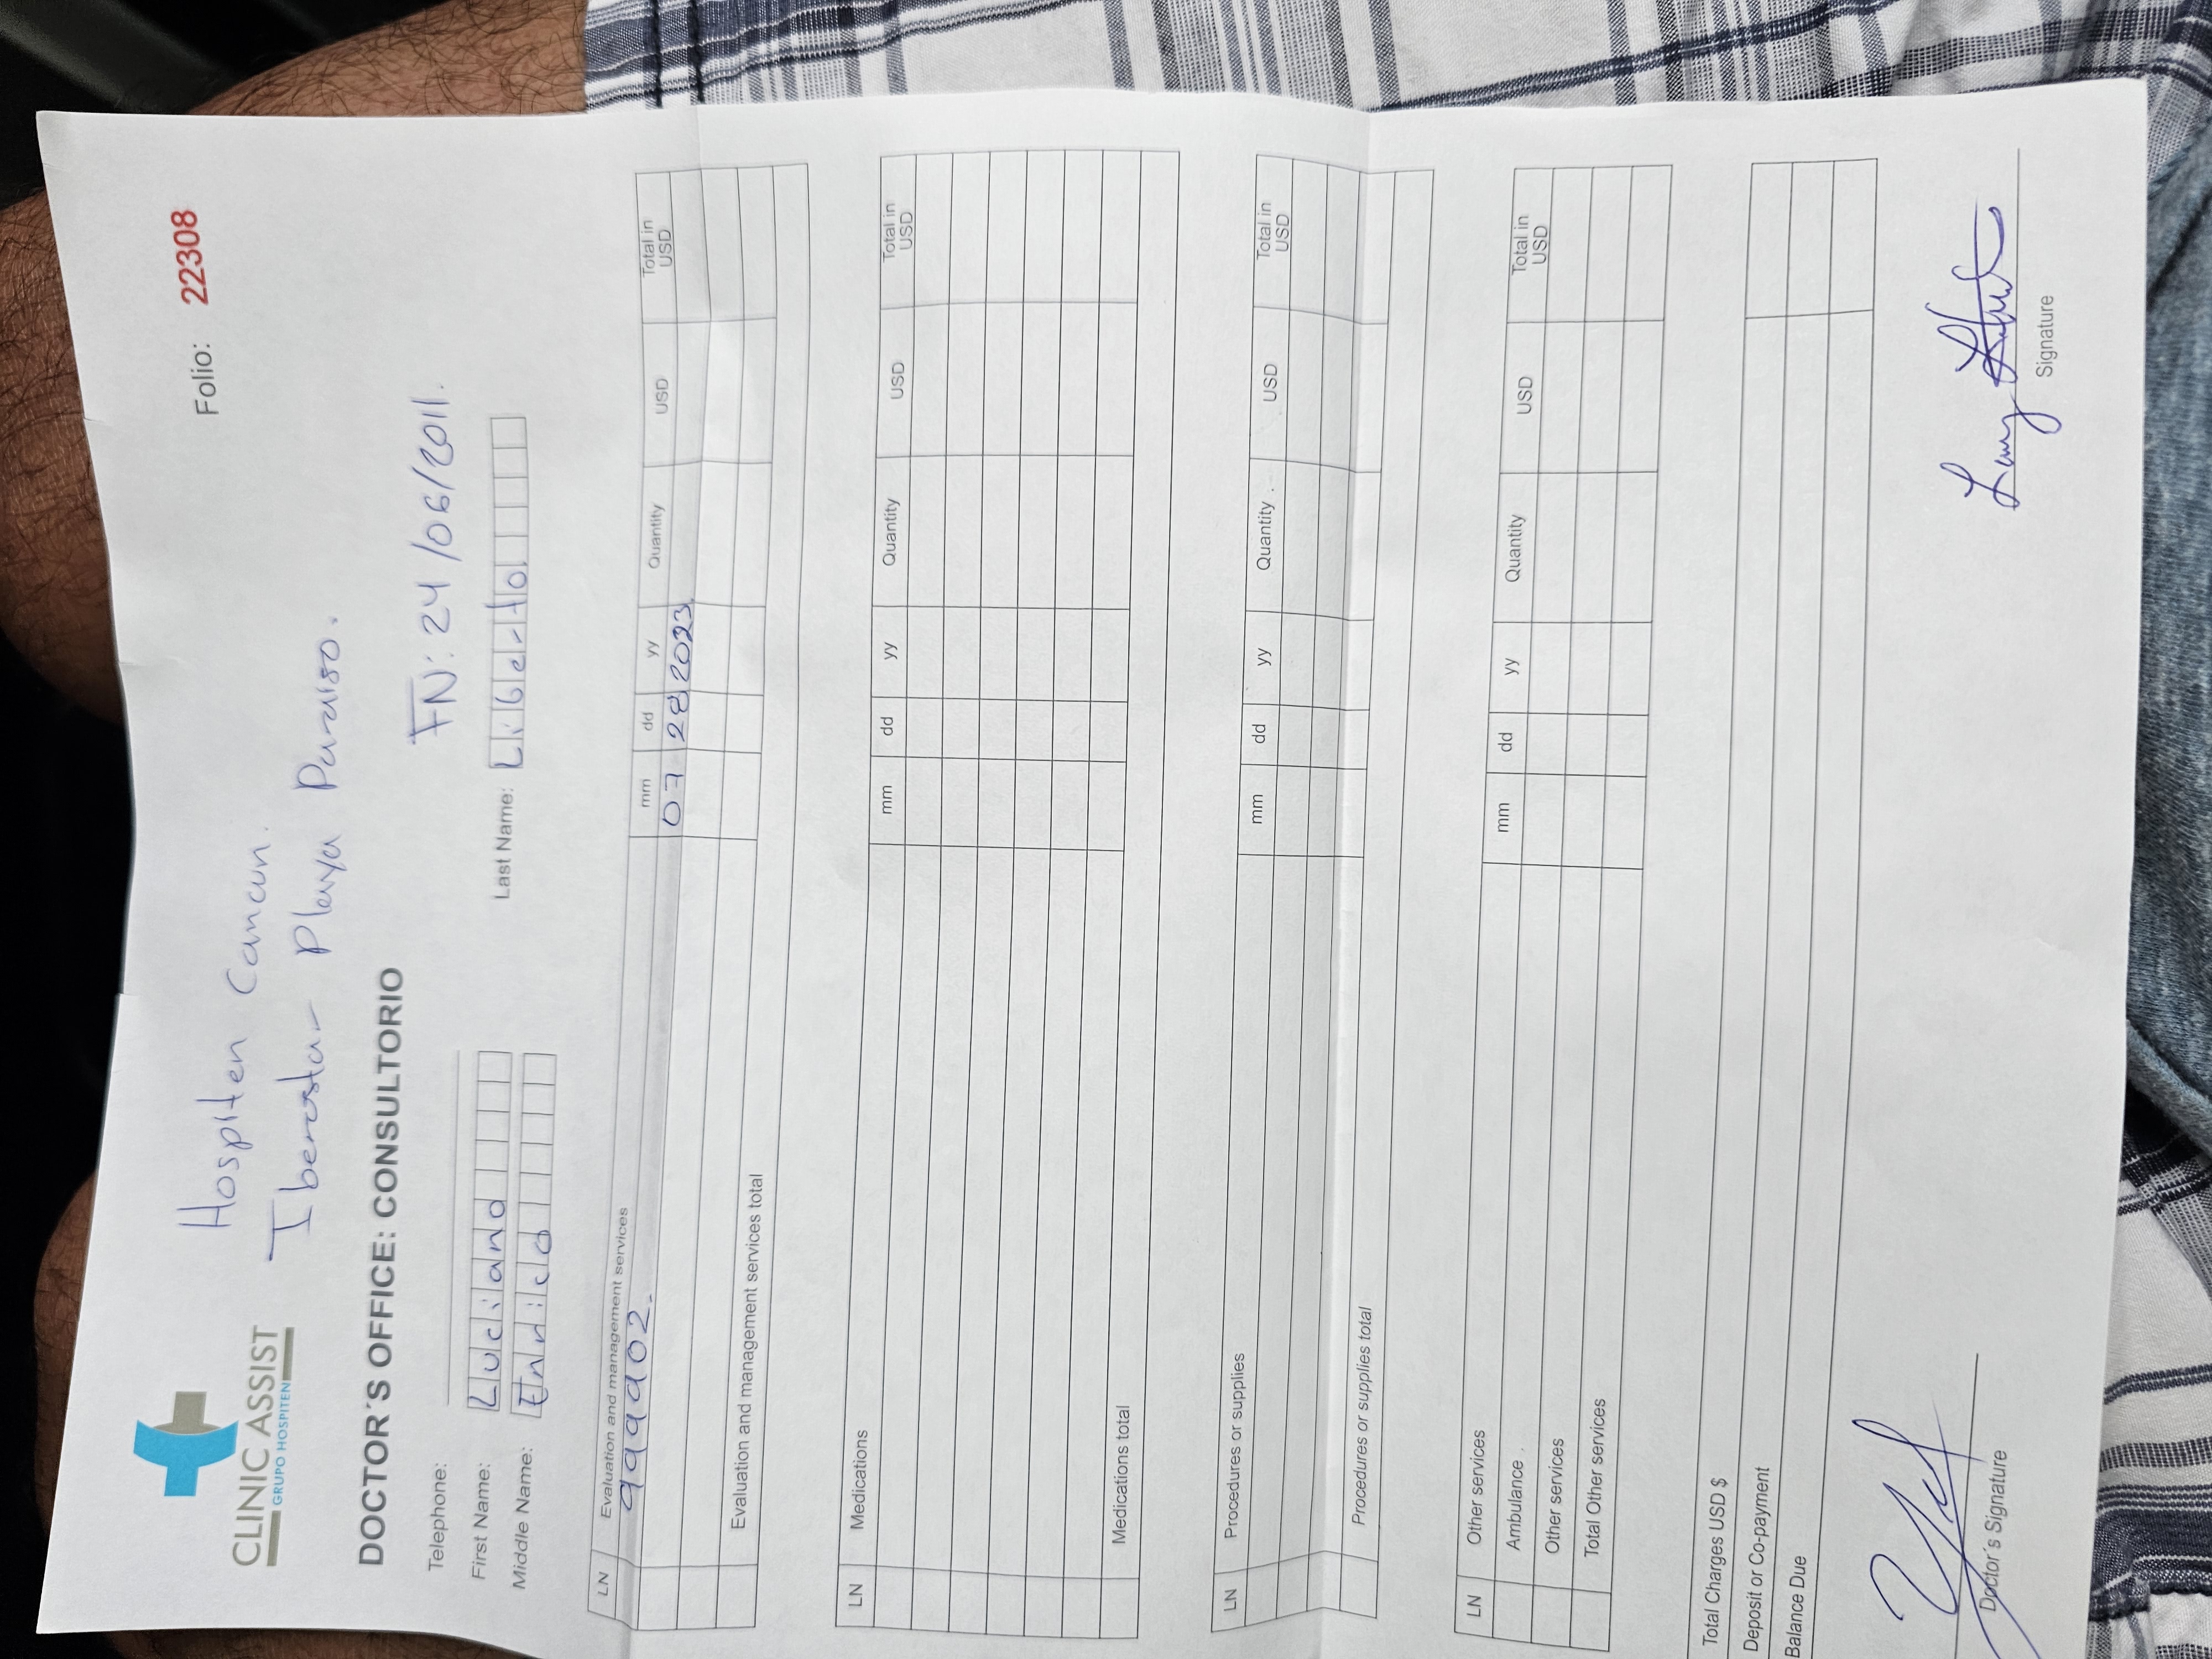 Hospiten Cancun.
Folio: 22308
CLINIC ASSIST
GRUPO HOSPITEN
Iberostar Playa Paraiso.
DOCTOR´S OFFICE: CONSULTORIO
FN: 24/06/2011.
Telephone:
First Name: Luciano
Last Name: Liberto
Middle Name:
LN Evaluation and management services mm dd yy Quantity USD Total in USD
999902. 07 28 2023
Evaluation and management services total
LN Medications mm dd yy Quantity USD Total in USD
Medications total
LN Procedures or supplies mm dd yy Quantity USD Total in USD
Procedures or supplies total
LN Other services mm dd yy Quantity USD Total in USD
Ambulance
Other services
Total Other services
Total Charges USD $
Deposit or Co-payment
Balance Due
Doctor´s Signature
Signature